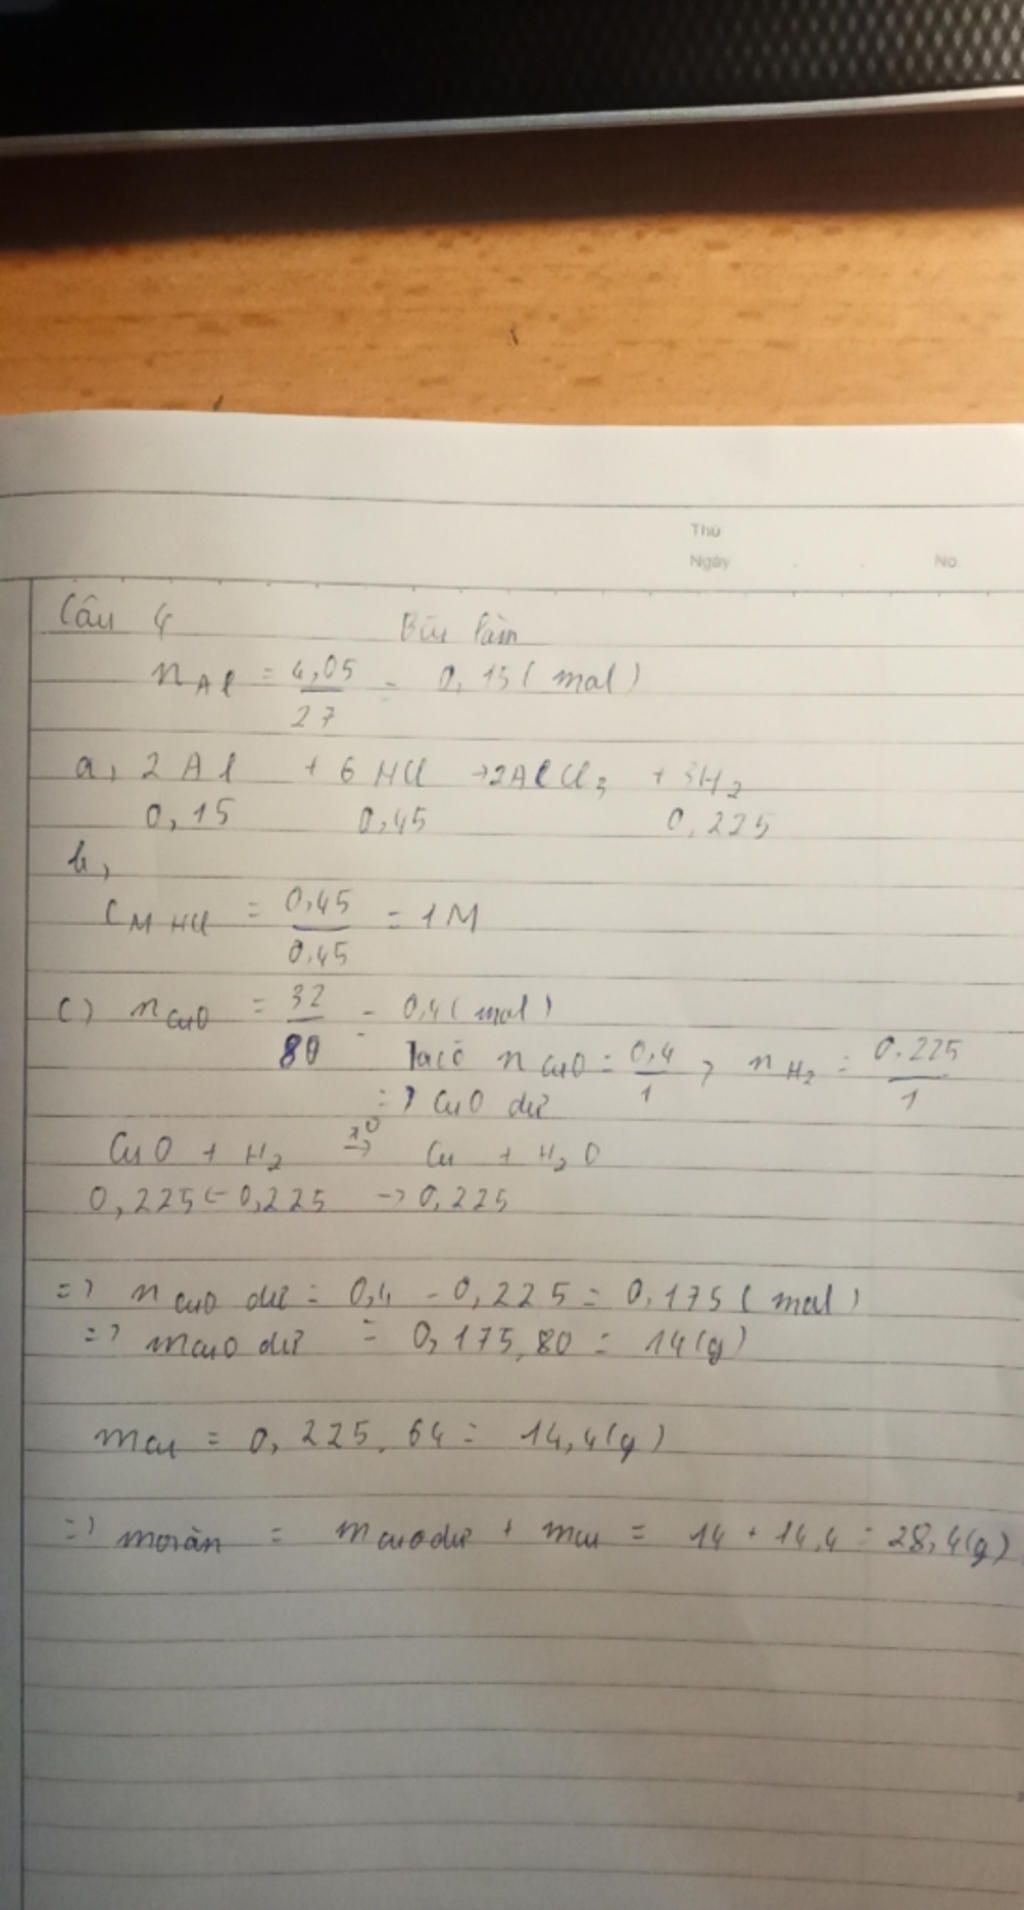 Thứ
Ngày No.
Câu 4 Bài làm
nAl = 4,05/27 = 0,15 (mol)
a, 2Al + 6HCl → 2AlCl3 + 3H2
0,15 0,45 0,225
b,
CM HCl = 0,45/0,45 = 1M
c) nCuO = 32/80 = 0,4 (mol)
Ta có nCuO = 0,4/1 > nH2 = 0,225/1
=> CuO dư
CuO + H2 →t° Cu + H2O
0,225 ← 0,225 → 0,225
=> nCuO dư = 0,4 - 0,225 = 0,175 (mol)
=> mCuO dư = 0,175.80 = 14 (g)
mCu = 0,225.64 = 14,4 (g)
=> mrắn = mCuO dư + mCu = 14 + 14,4 = 28,4 (g)